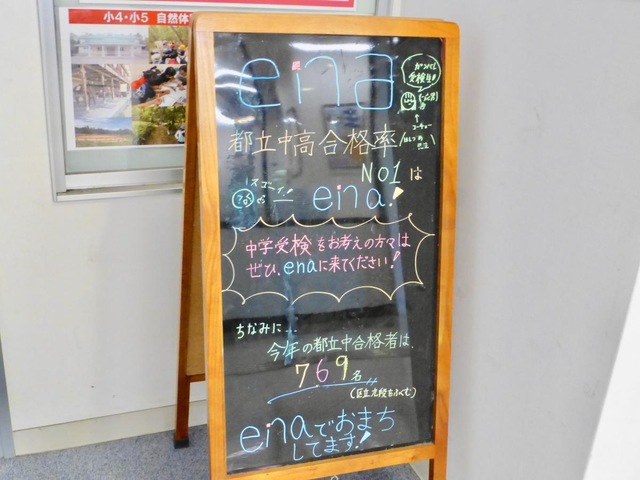 小4・小5 自然体
ena
がんばれ
受検生!!
都立中高合格率
No1は
スゴーイ!!
ena!
中学受検をお考えの方々は
ぜひ、enaに来てください!
ちなみに…
今年の都立中合格者は、
769名
(区立九段もふくむ)
enaでおまち
してます!